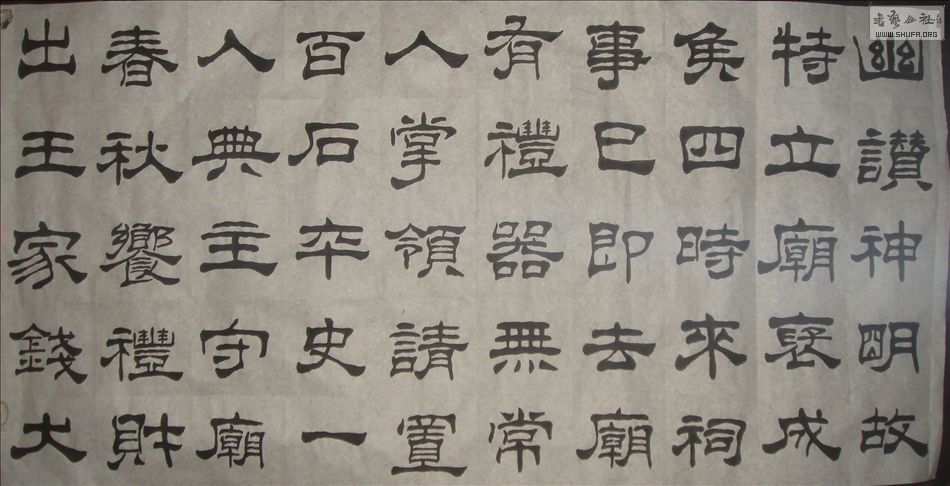 幽讚神明故
特立廟褒成
侯四時來祠
事已即去廟
有禮器無常
人掌領請置
百石卒史一
人典主守廟
春秋饗禮財
出王家錢大
书艺公社
WWW.SHUFA.ORG